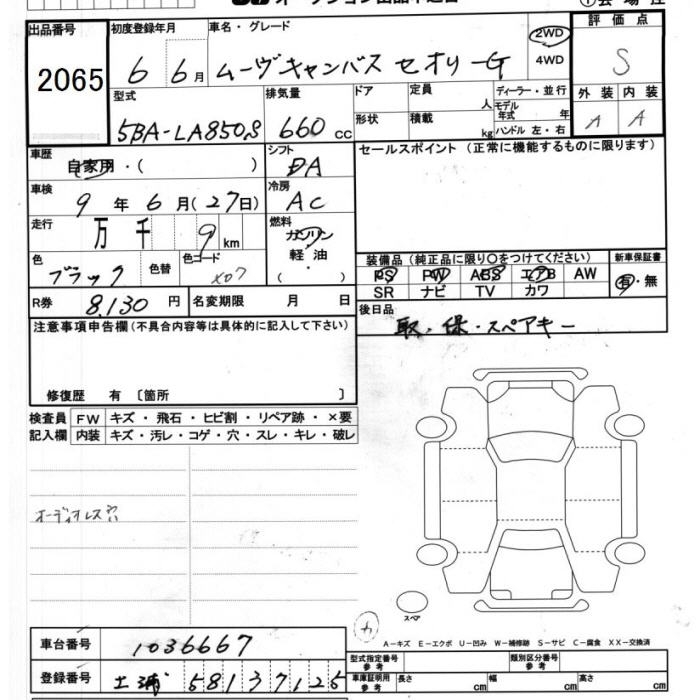 出品番号 2065
初度登録年月 6 6月
車名・グレード ムーヴキャンバス セオリーG
2WD
4WD
評価点 S
外装 A 内装 A
型式 5BA-LA850S
排気量 660 cc
ドア
形状
定員 人
積載 kg
ディーラー・並行
モデル年式 年
ハンドル 左・右
車歴 自家用・( )
シフト DA
セールスポイント (正常に機能するものに限ります)
車検 9年 6月(27日)
冷房 AC
走行 万 千 9 km
燃料 ガソリン
軽油
( ・ )
色 ブラック 色替 色コード X07
装備品(純正品に限り〇をつけてください) 新車保証書
PS PW ABS エアB AW 有・無
SR ナビ TV カワ
R券 8,130 円 名変期限 月 日
後日品 取・保・スペアキー
注意事項申告欄(不具合内容等は具体的に記入して下さい)
修復歴 有 〔箇所 〕
検査員記入欄
FW キズ・飛石・ヒビ割・リペア跡・×要
内装 キズ・汚レ・コゲ・穴・スレ・キレ・破レ
オーディオレス穴
スペア
A-キズ E-エクボ U-凹み W-補修跡 S-サビ C-腐食 XX-交換済
車台番号 1036667
型式指定番号 参考 類別区分番号 参考
登録番号 土浦 581 37125
車庫証明用 参考 長さ cm 幅 cm 高さ cm